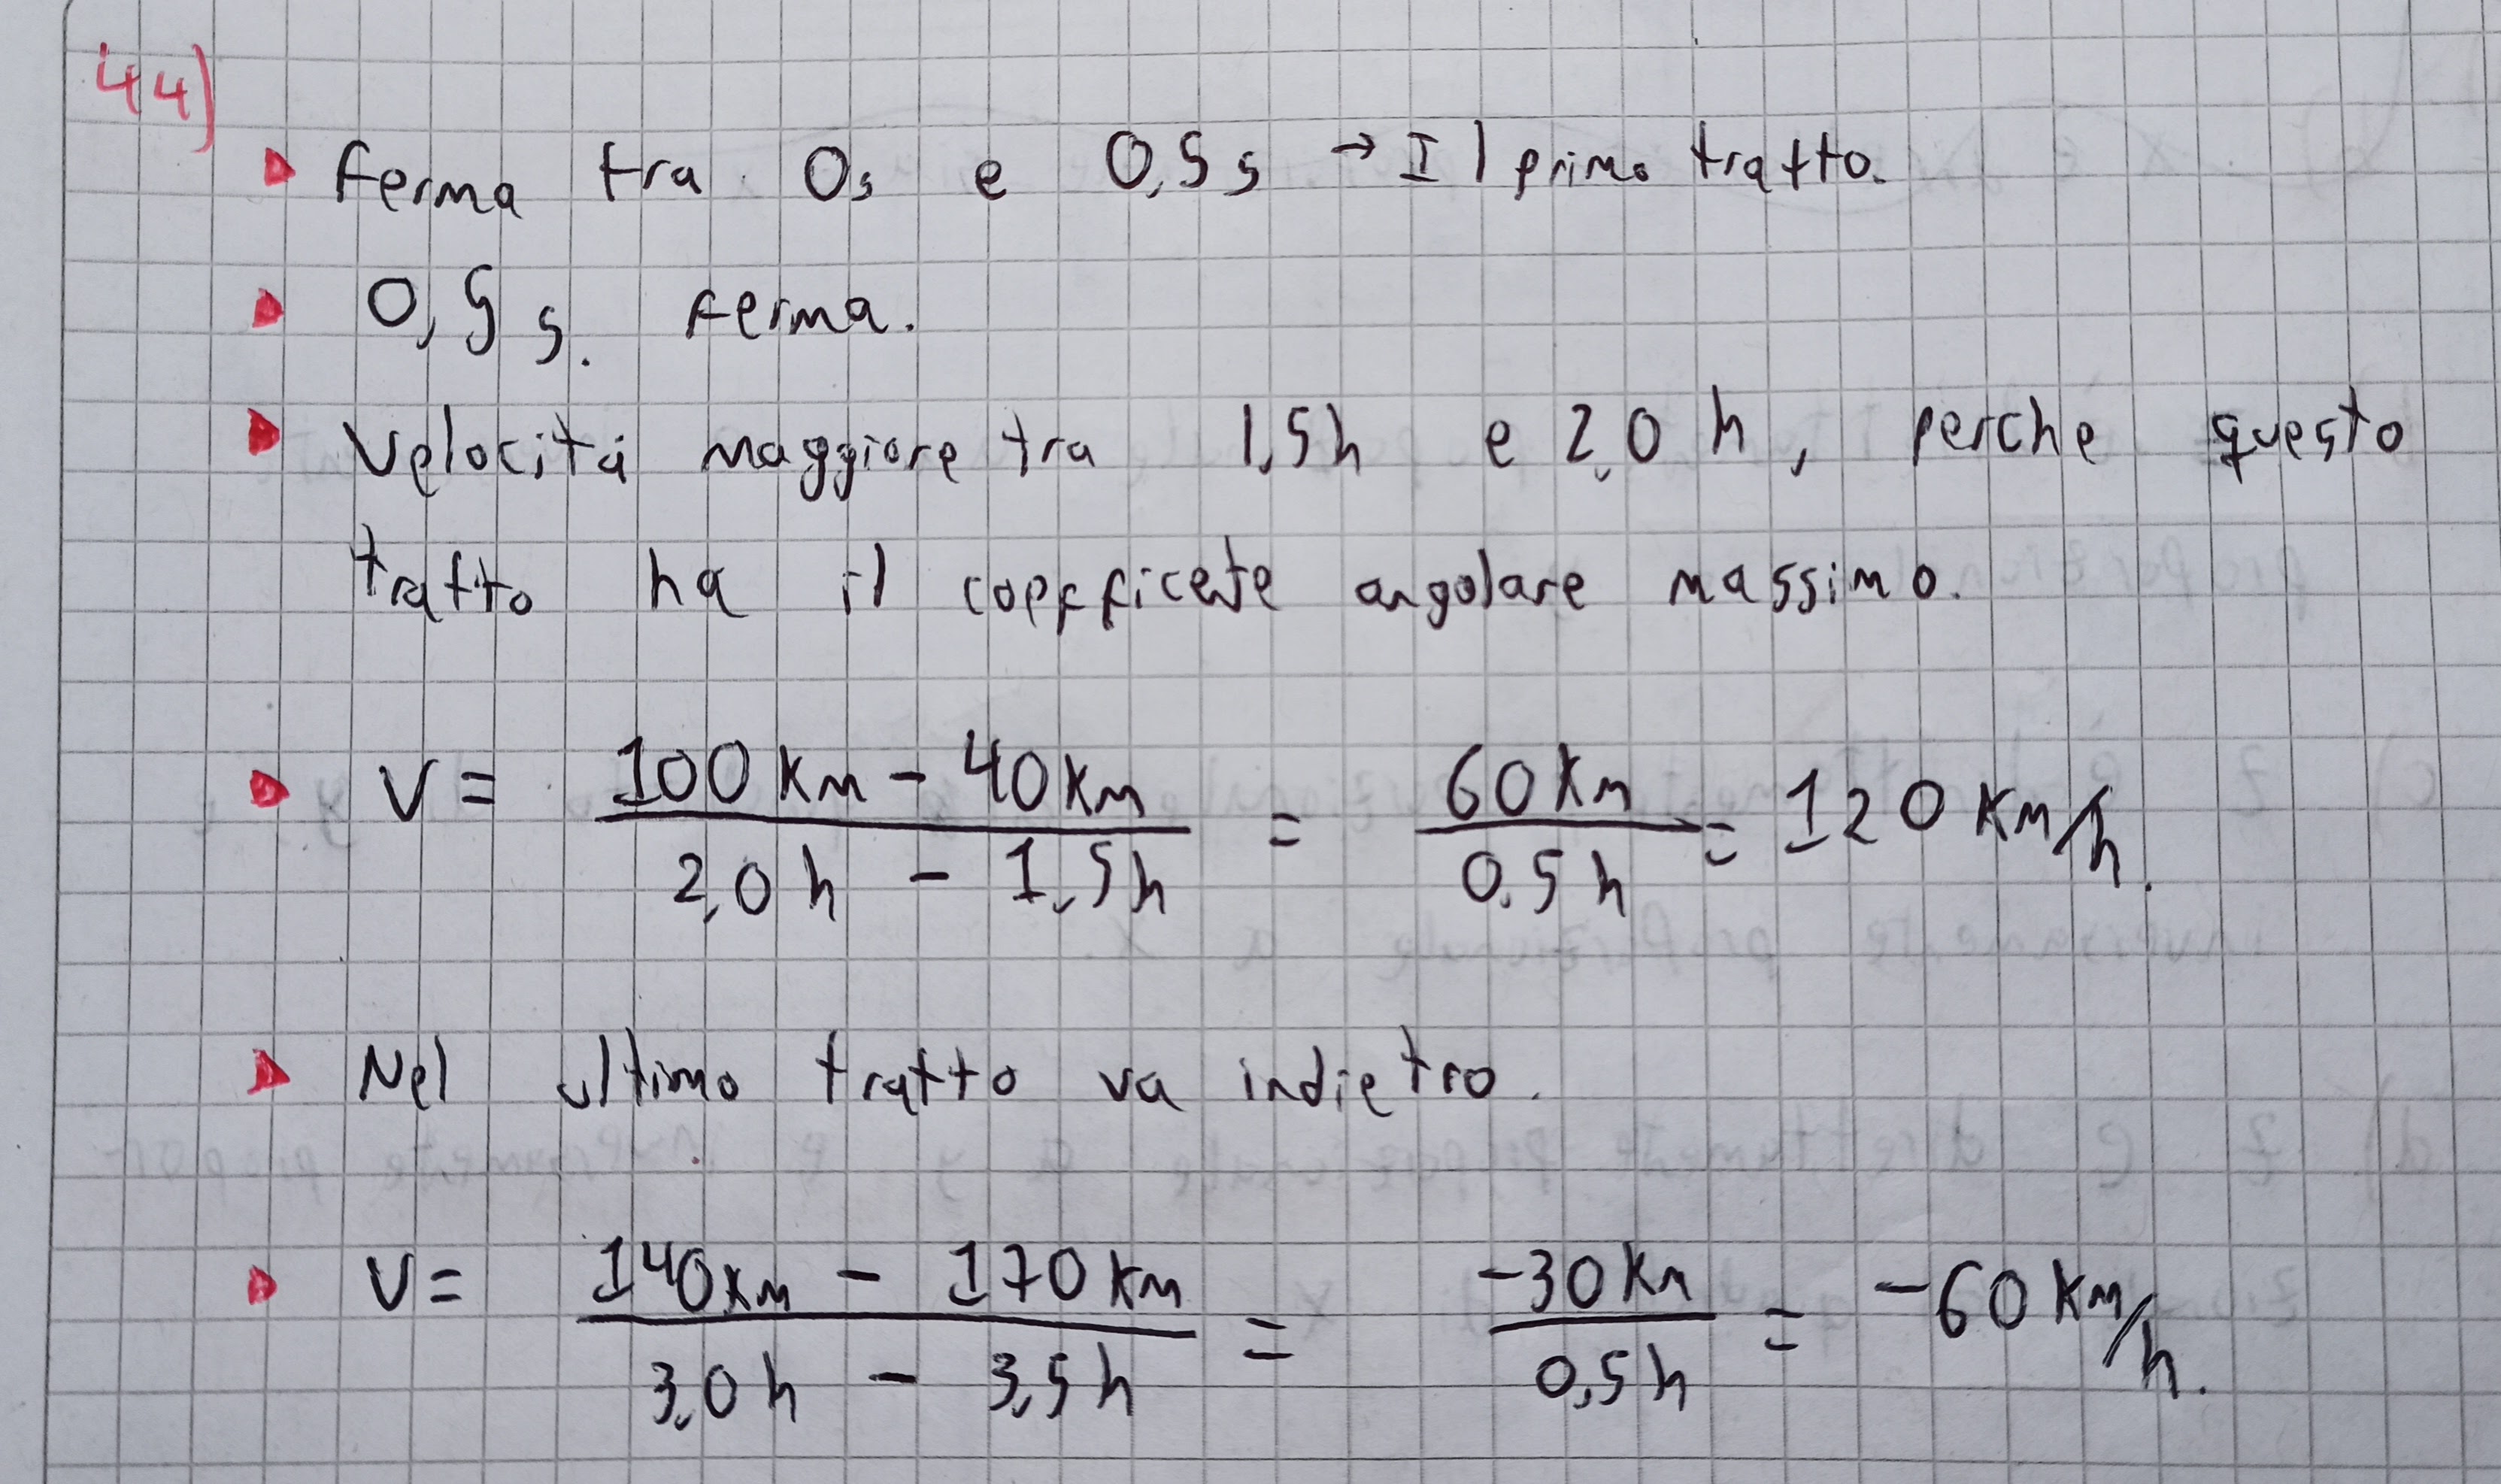 44)
Ferma tra 0s e 0,5s → Il primo tratto.
0,5 s. Ferma.
Velocitá maggiore tra 1,5h e 2,0 h, perche questo
tratto ha il coefficete angolare massimo.
V = (100 Km - 40 Km) / (2,0 h - 1,5h) = 60 Km / 0.5 h = 120 Km/h.
Nel ultimo tratto va indietro.
V = (140 Km - 170 Km) / (3,0 h - 3,5 h) = -30 Km / 0,5 h = -60 Km/h.